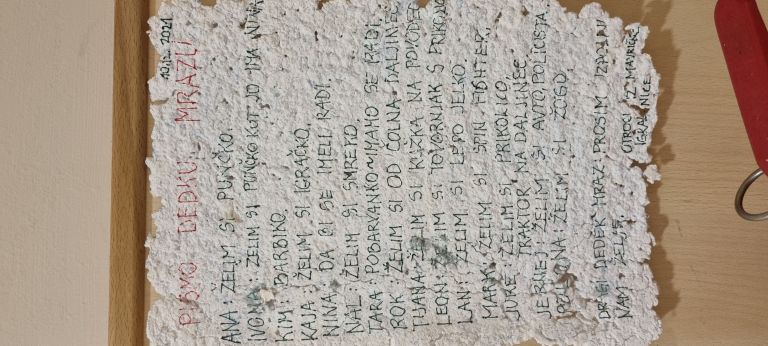 10.12. 2021
PISMO DEDKU MRAZU
ANA: ŽELIM SI PUNČKO.
ŽELIM SI PUNČKO KOT JO IMA
KIM: BARBIKO.
KAJA: ŽELIM SI IGRAČKO.
NINA: DA BI SE IMELI RADI.
NAL: ŽELIM SI SMREKO.
TARA: POBARVANKO IMAMO SE RADI.
ROK: ŽELIM SI OD ČOLNA DALJINEC
TIJANA: ŽELIM SI KUŽKA NA POVODEC
LEON: ŽELIM SI TOVORNJAK S PRIKOLICO
LAN: ŽELIM SI LEPO JELKO.
MARK: ŽELIM SI SPIN FIGHTER.
JURE: ŽELIM SI PRIKOLICO,
TRAKTOR NA DALJINEC
JERNEJ: ŽELIM SI AVTO, POLICISTA
ŽELIM SI
DRAGI DEDEK MRAZ PROSIM IZPOLNI
NAM ŽELJE.
OTROCI IZ MAVRIČNE
IGRALNICE